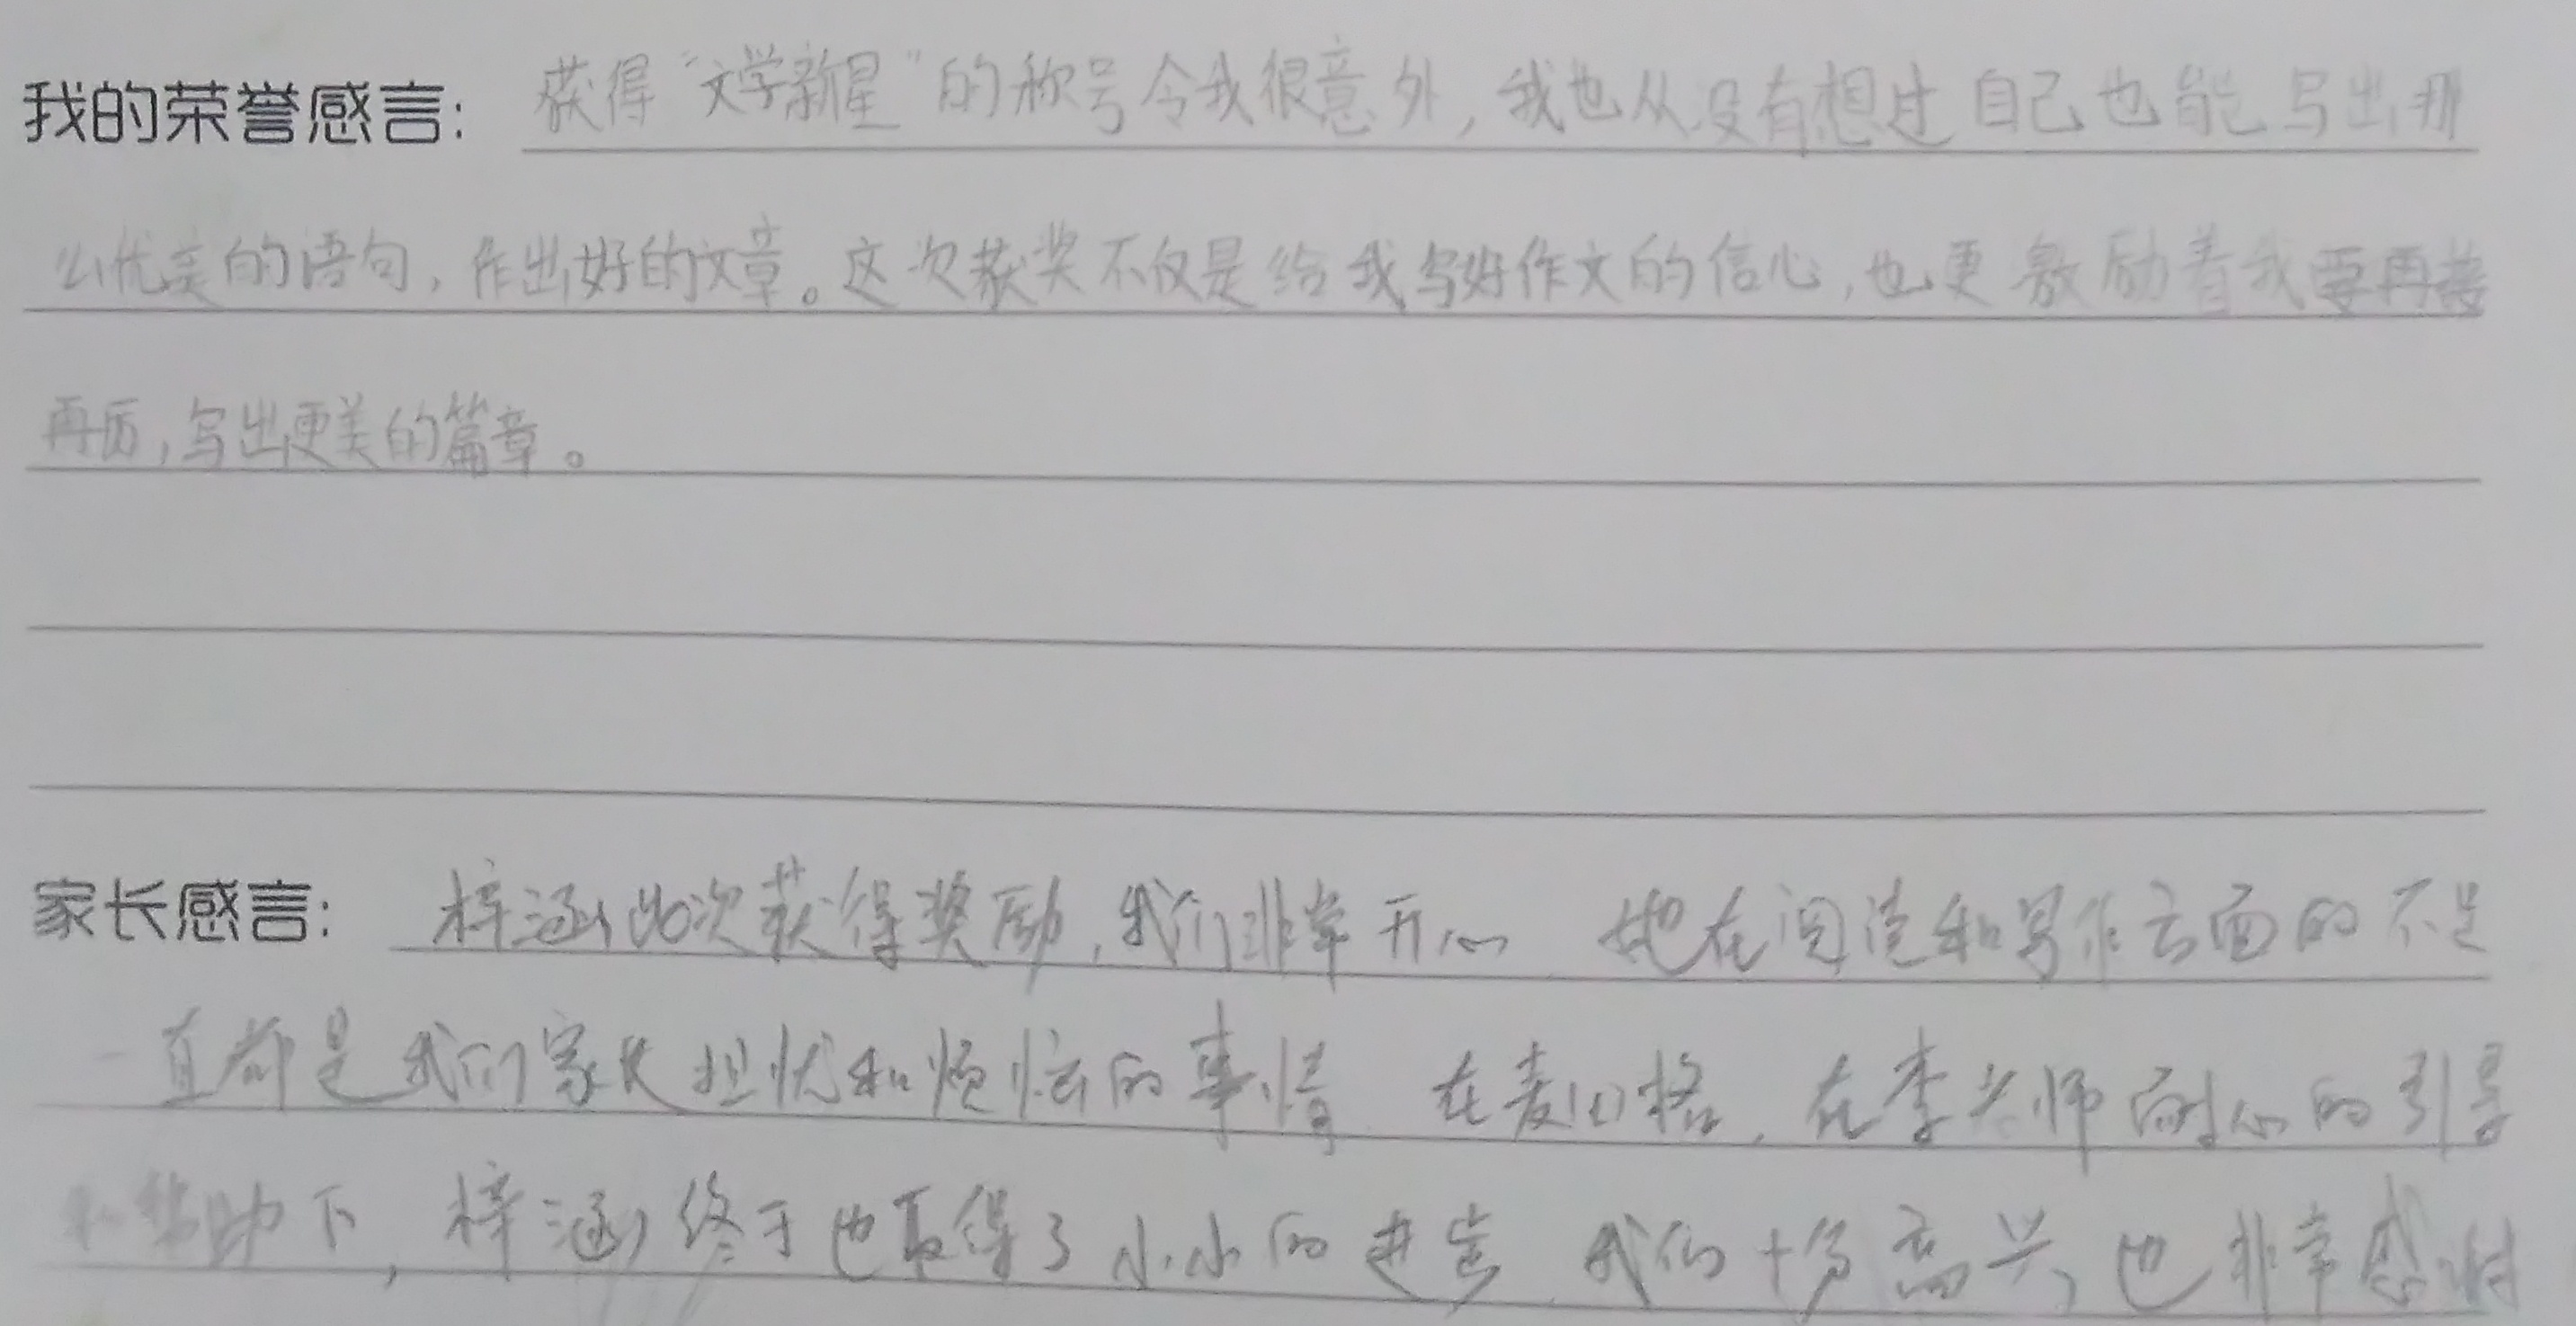 我的荣誉感言: 获得“文学新星”的称号令我很意外，我也从没有想过自己也能写出那
么优美的语句，作出好的文章。这次获奖不仅是给我写好作文的信心，也更激励着我要再接
再厉，写出更美的篇章。
家长感言: 梓涵此次获得奖励，我们非常开心 她在阅读和写作方面的不足
一直都是我们家长担忧和烦恼的事情 在麦田格，在李老师耐心的引导
和帮助下，梓涵终于也取得了小小的进步 我们十分高兴，也非常感谢